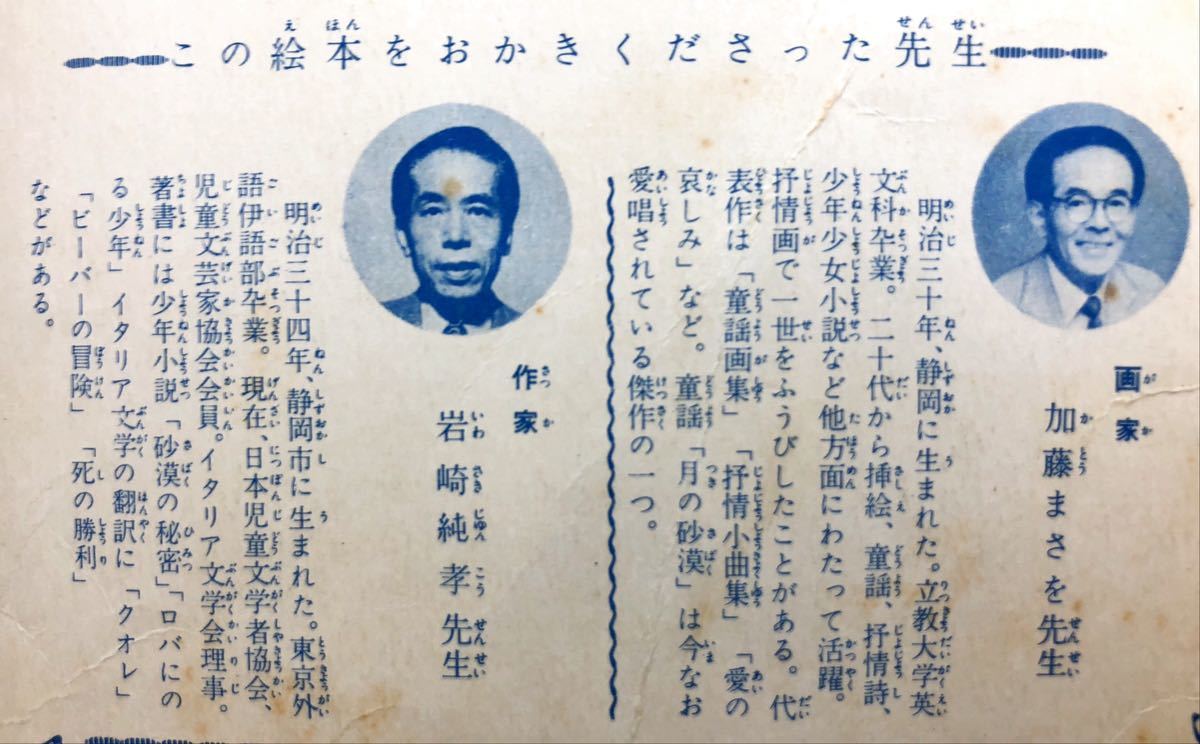 この絵本をおかきくださった先生
画家
加藤まさを先生
明治三十年、静岡に生まれた。立教大学英
文科卒業。二十代から挿絵、童謡、抒情詩、
少年少女小説など他方面にわたって活躍。
抒情画で一世をふうびしたことがある。代
表作は「童謡画集」「抒情小曲集」「愛の
哀しみ」など。童謡「月の砂漠」は今なお
愛唱されている傑作の一つ。
作家
岩崎純孝先生
明治三十四年、静岡市に生まれた。東京外
語伊語部卒業。現在、日本児童文学者協会、
児童文芸家協会会員。イタリア文学会理事。
著書には少年小説「砂漠の秘密」「ロバにの
る少年」イタリア文学の翻訳に「クオレ」
「ビーバーの冒険」「死の勝利」
などがある。